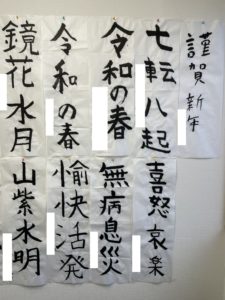 謹賀新年
七転八起
令和の春
令和の春
鏡花水月
喜怒哀楽
無病息災
愉快活発
山紫水明